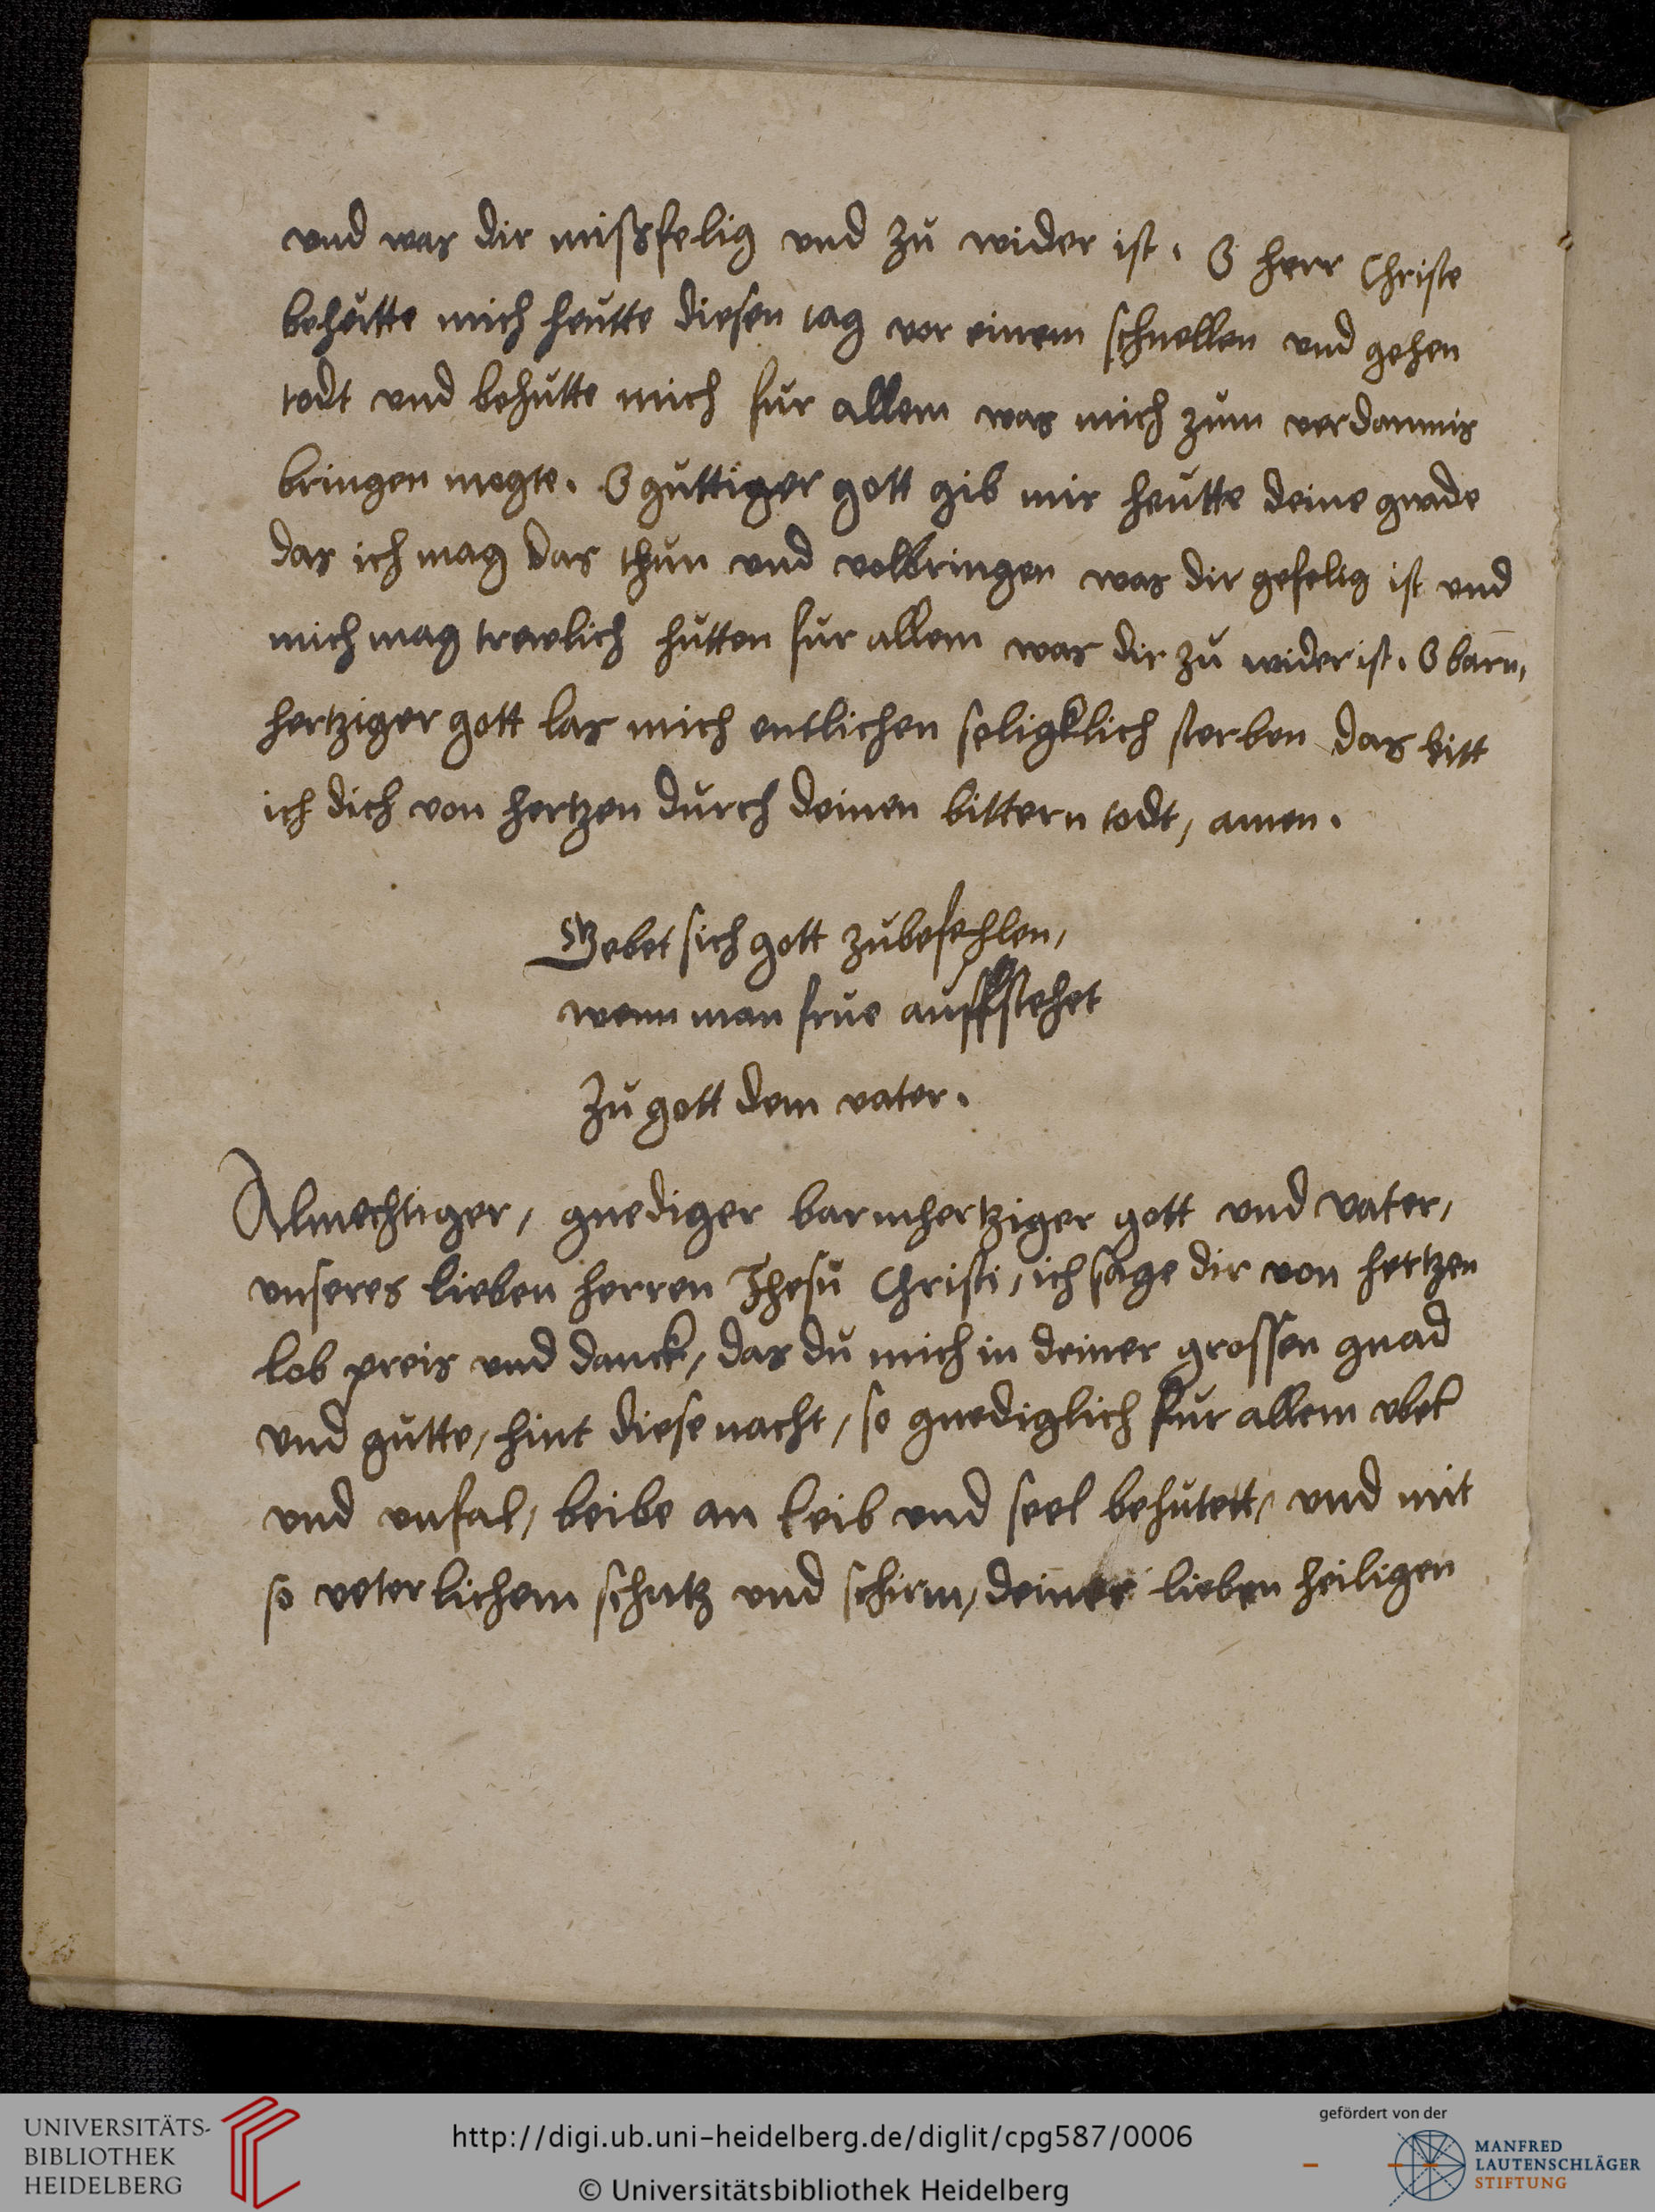 und was dir mißfelig und zu wider ist. O herr Christe
behütte mich heutte diesen tag vor einem schnellen und gehen
todt und behutte mich fur allem was mich zum verdamnis
bringen mogte. O guttiger gott gib mir heutte deine gnade
das ich mag das thun und volbringen was dir gefelig ist und
mich mag trewlich hutten fur allem was dir zu wider ist. O barm,
hertziger gott las mich entlichen seligklich sterben das bitt
ich dich von hertzen durch deinen bittern todt, amen.
Gebet sich gott zubefehlen,
wenn man frue auffstehet
Zu gott dem vater.
Almechtiger, gnediger barmhertziger gott und vater,
unseres lieben herren Jhesu Christi, ich sage dir von hertzen
lob preis und danck, das du mich in deiner grossen gnad
und gutte, hint diese nacht, so gnediglich fur allem ubel
und unfal, beide an leib und seel behutett, und mit
so veterlichem schutz und schirm, deiner lieben heiligen
UNIVERSITÄTS-
BIBLIOTHEK
HEIDELBERG
http://digi.ub.uni-heidelberg.de/diglit/cpg587/0006
© Universitätsbibliothek Heidelberg
gefördert von der
MANFRED
LAUTENSCHLÄGER
STIFTUNG